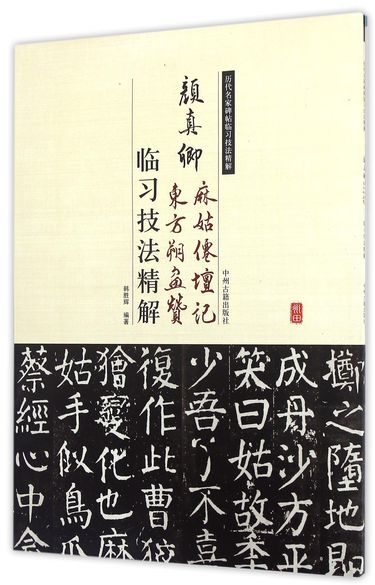 历代名家碑帖临习技法精解
顏真卿
麻姑僊壇記
東方朔畫贊
临习技法精解
韩胜辉 编著
中州古籍出版社
擲之墮地即
成丹沙方平
笑曰姑故秊
少吾了不喜
復作此曹狡
獪變化也麻
姑手似鳥爪
蔡經心中念